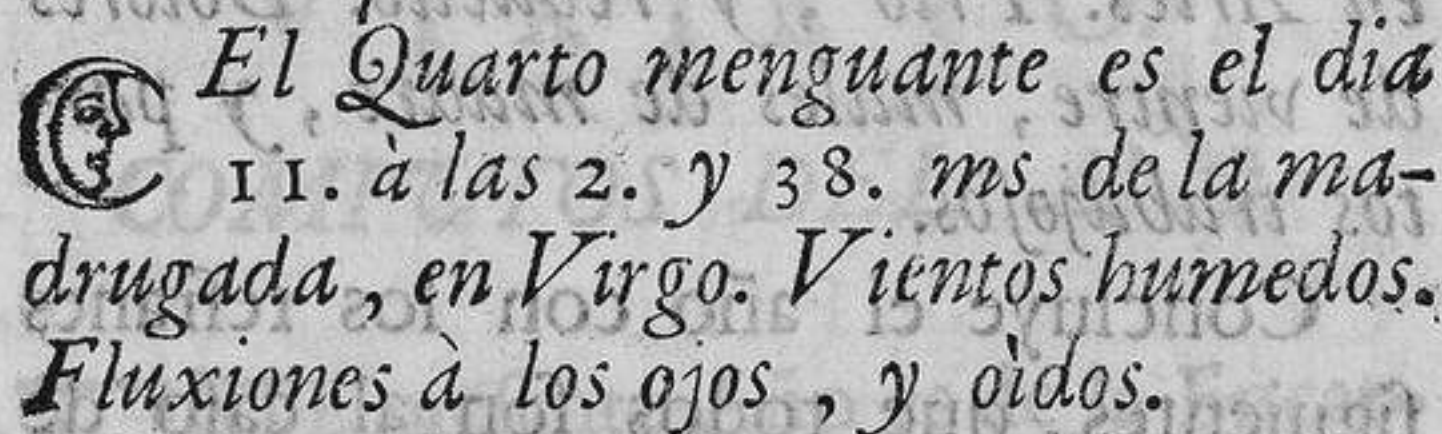 El Quarto menguante es el dia
11. à las 2. y 38. ms de la ma-
drugada, en Virgo. Vientos humedos.
Fluxiones à los ojos, y oìdos.